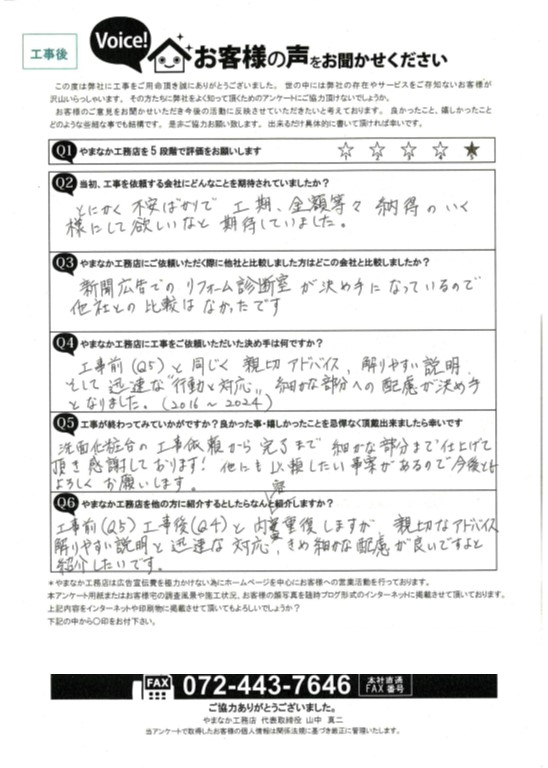 工事後
Voice!
お客様の声をお聞かせください
この度は弊社に工事をご用命頂き誠にありがとうございました。 世の中には弊社の存在やサービスをご存知ないお客様が
沢山いらっしゃいます。 その方たちに弊社をよく知って頂くためのアンケートにご協力頂けないでしょうか。
お客様のご意見をお聞かせいただき今後の活動に反映させていただきたいと考えております。 良かったこと、嬉しかったこと
どのような些細な事でも結構です。 是非ご協力お願い致します。 出来るだけ具体的に書いて頂ければ幸いです。
Q1 やまなか工務店を5段階で評価をお願いします
1 2 3 4 5
Q2 当初、工事を依頼する会社にどんなことを期待されていましたか?
とにかく不安ばかりで 工期、金額等々 納得のいく
様にして欲しいなと 期待していました。
Q3 やまなか工務店にご依頼いただく際に他社と比較しました方はどこの会社と比較しましたか?
新聞広告でのリフォーム診断室が決め手になっているので
他社との比較はなかったです
Q4 やまなか工務店に工事をご依頼いただいた決め手は何ですか?
工事前(Q5)と同じく 親切アドバイス、解りやすい説明
そして 迅速な"行動と対応"、細かな部分への配慮が決め手
となりました。(2016〜2024)
Q5 工事が終わってみていかがですか?良かった事・嬉しかったことを忌憚なく頂戴出来ましたら幸いです
洗面化粧台の工事依頼から完了まで 細かな部分まで仕上げて
頂き感謝しております! 他にも依頼したい事案があるので今後とも
よろしくお願いします。
Q6 やまなか工務店を他の方に紹介するとしたらなんと紹介しますか?
工事前(Q5)工事後(Q4)と内容重複しますが、親切なアドバイス
解りやすい説明と迅速な対応、きめ細かな配慮が良いですよと
紹介したいです。
*やまなか工務店は広告宣伝費を極力かけない為にホームページを中心にお客様への営業活動を行っております。
本アンケート用紙またはお客様宅の調査風景や施工状況、お客様の顔写真を随時ブログ形式のインターネットに掲載させて頂いております。
上記内容をインターネットや印刷物に掲載させて頂いてもよろしいでしょうか?
下記の中から〇印をお付下さい。
FAX 072-443-7646 本社直通FAX番号
ご協力ありがとうございました。
やまなか工務店 代表取締役 山中 真二
当アンケートで取得したお客様の個人情報は関係法規に基づき厳正に管理いたします。